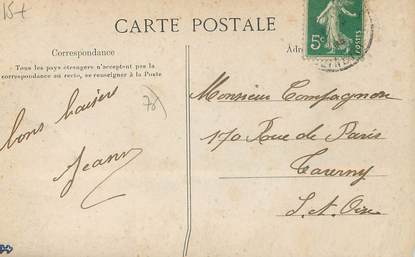 15+
CARTE POSTALE
Correspondance
Tous les pays étrangers n'acceptent pas la
correspondance au recto, se renseigner à la Poste
bons baisers
Jeanne
5c
POSTES
Monsieur Compagnon
170 Rue de Paris
Taverny
S. et. Oise